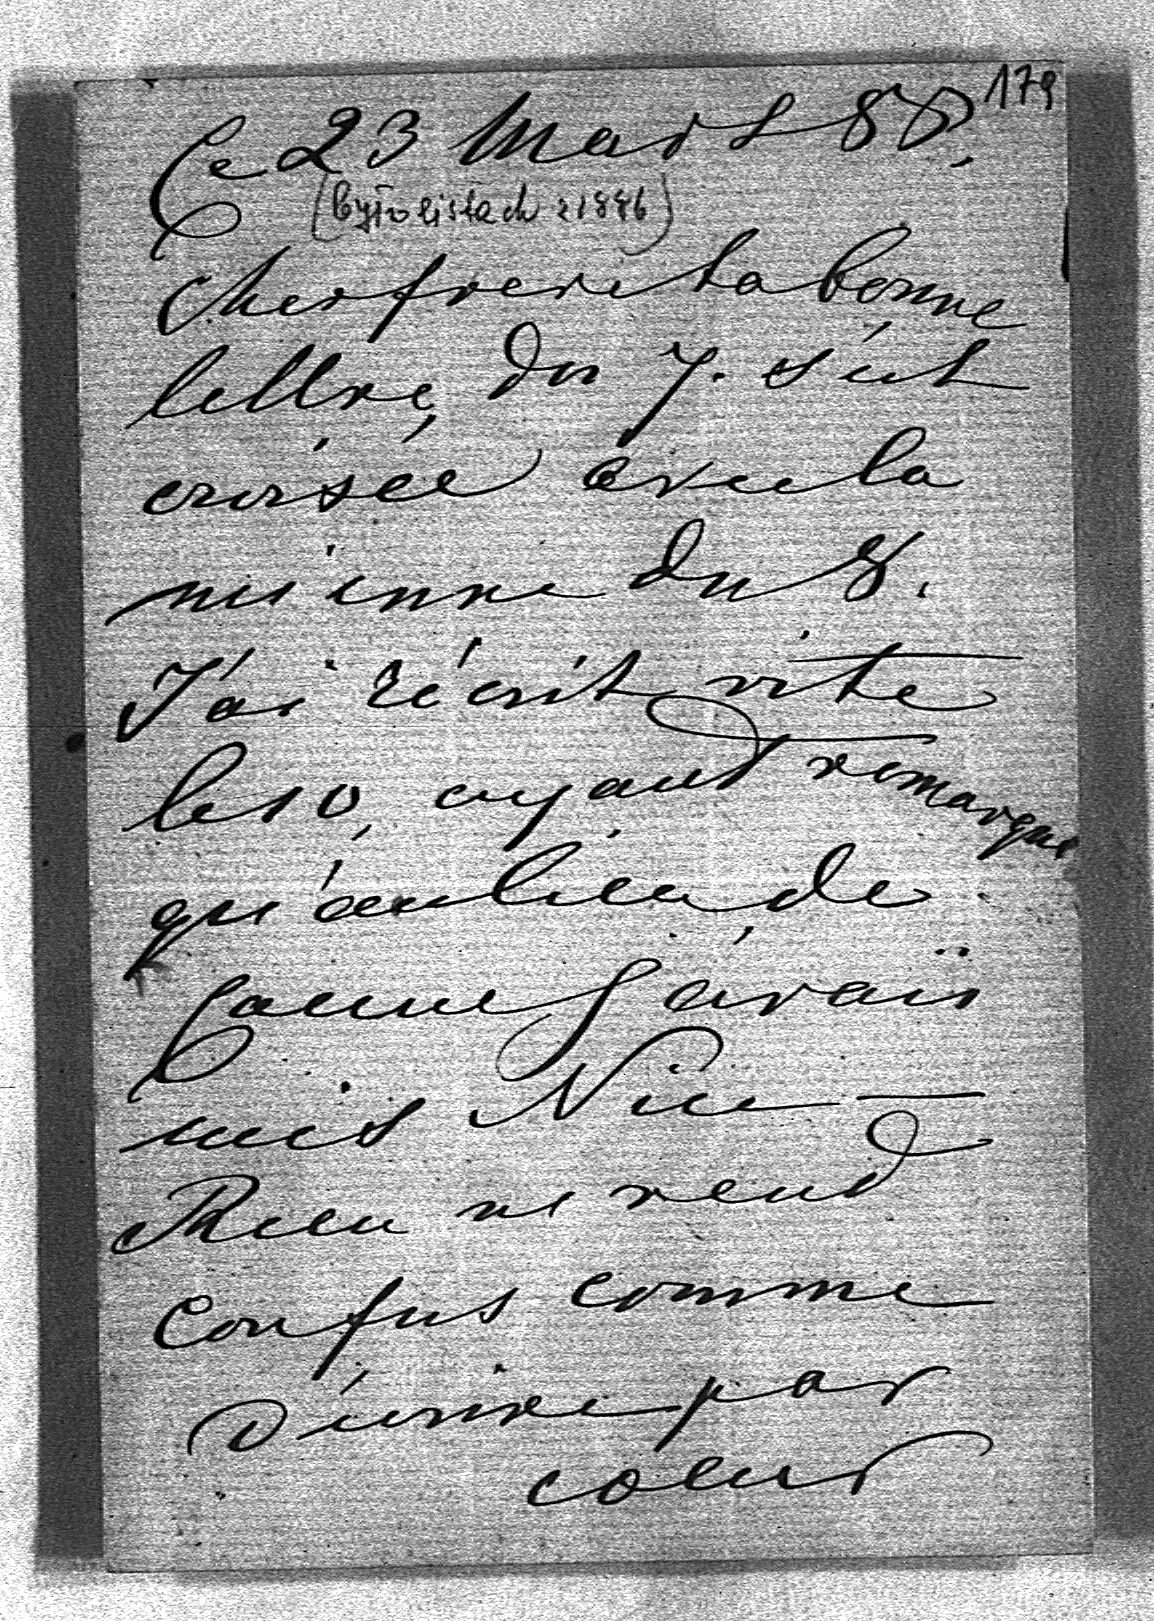 179
Ce 23 Mars 88.
(było w listach z 1886)
Cher frere ta bonne
lettre, du 7. s'est
croisée avec la
mienne du 8.
J'ai récrit vite
le 10, ayant remarqué
qu'au lieu de
Cannes j'avais
mis Nice —
Rien ne rend
confus comme
d'écrire par
coeur